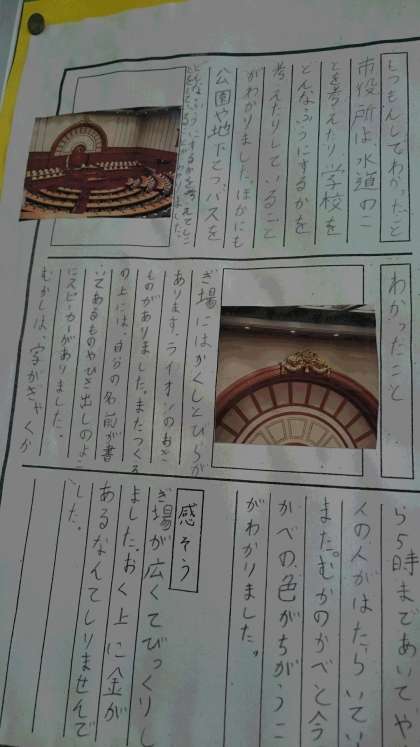 しつもんしてわかったこと
市役所は、水道のこ
とを考えたり、学校を
どんなふうにするかを
考えたりしていること
がわかりました。ほかにも
公園や地下てつ、バスを
どんなふうにするかを考えてしご
わかったこと
ぎ場にはかくしとびらが
あります。ライオンのおき
ものがありました。またつくえ
の上には、自分の名前が書
いてあるものやひき出しのよう
にスピーカーがありました。
むかしは、字がぎゃくか
ら5時まであいて、や
人の人がはたらいてい
また。むかのかべと今
かべの色がちがうこ
がわかりました。
感そう
ぎ場が広くてびっくりし
ました。おく上に金が
あるなんてしりませんで
した。